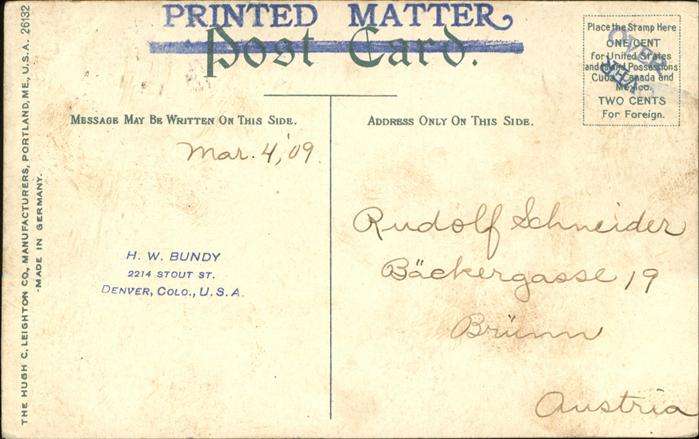 PRINTED MATTER
Post Card.
Place the Stamp Here
ONE CENT
for United States
and Island Possessions
Cuba, Canada and
Mexico.
TWO CENTS
For Foreign.
MESSAGE MAY BE WRITTEN ON THIS SIDE.
ADDRESS ONLY ON THIS SIDE.
Mar. 4, '09.
H. W. BUNDY
2214 STOUT ST.
DENVER, COLO., U.S.A.
Rudolf Schneider
Bäckergasse 19
Brünn
Austria
THE HUGH C. LEIGHTON CO., MANUFACTURERS, PORTLAND, ME., U.S.A. 26132
-MADE IN GERMANY.